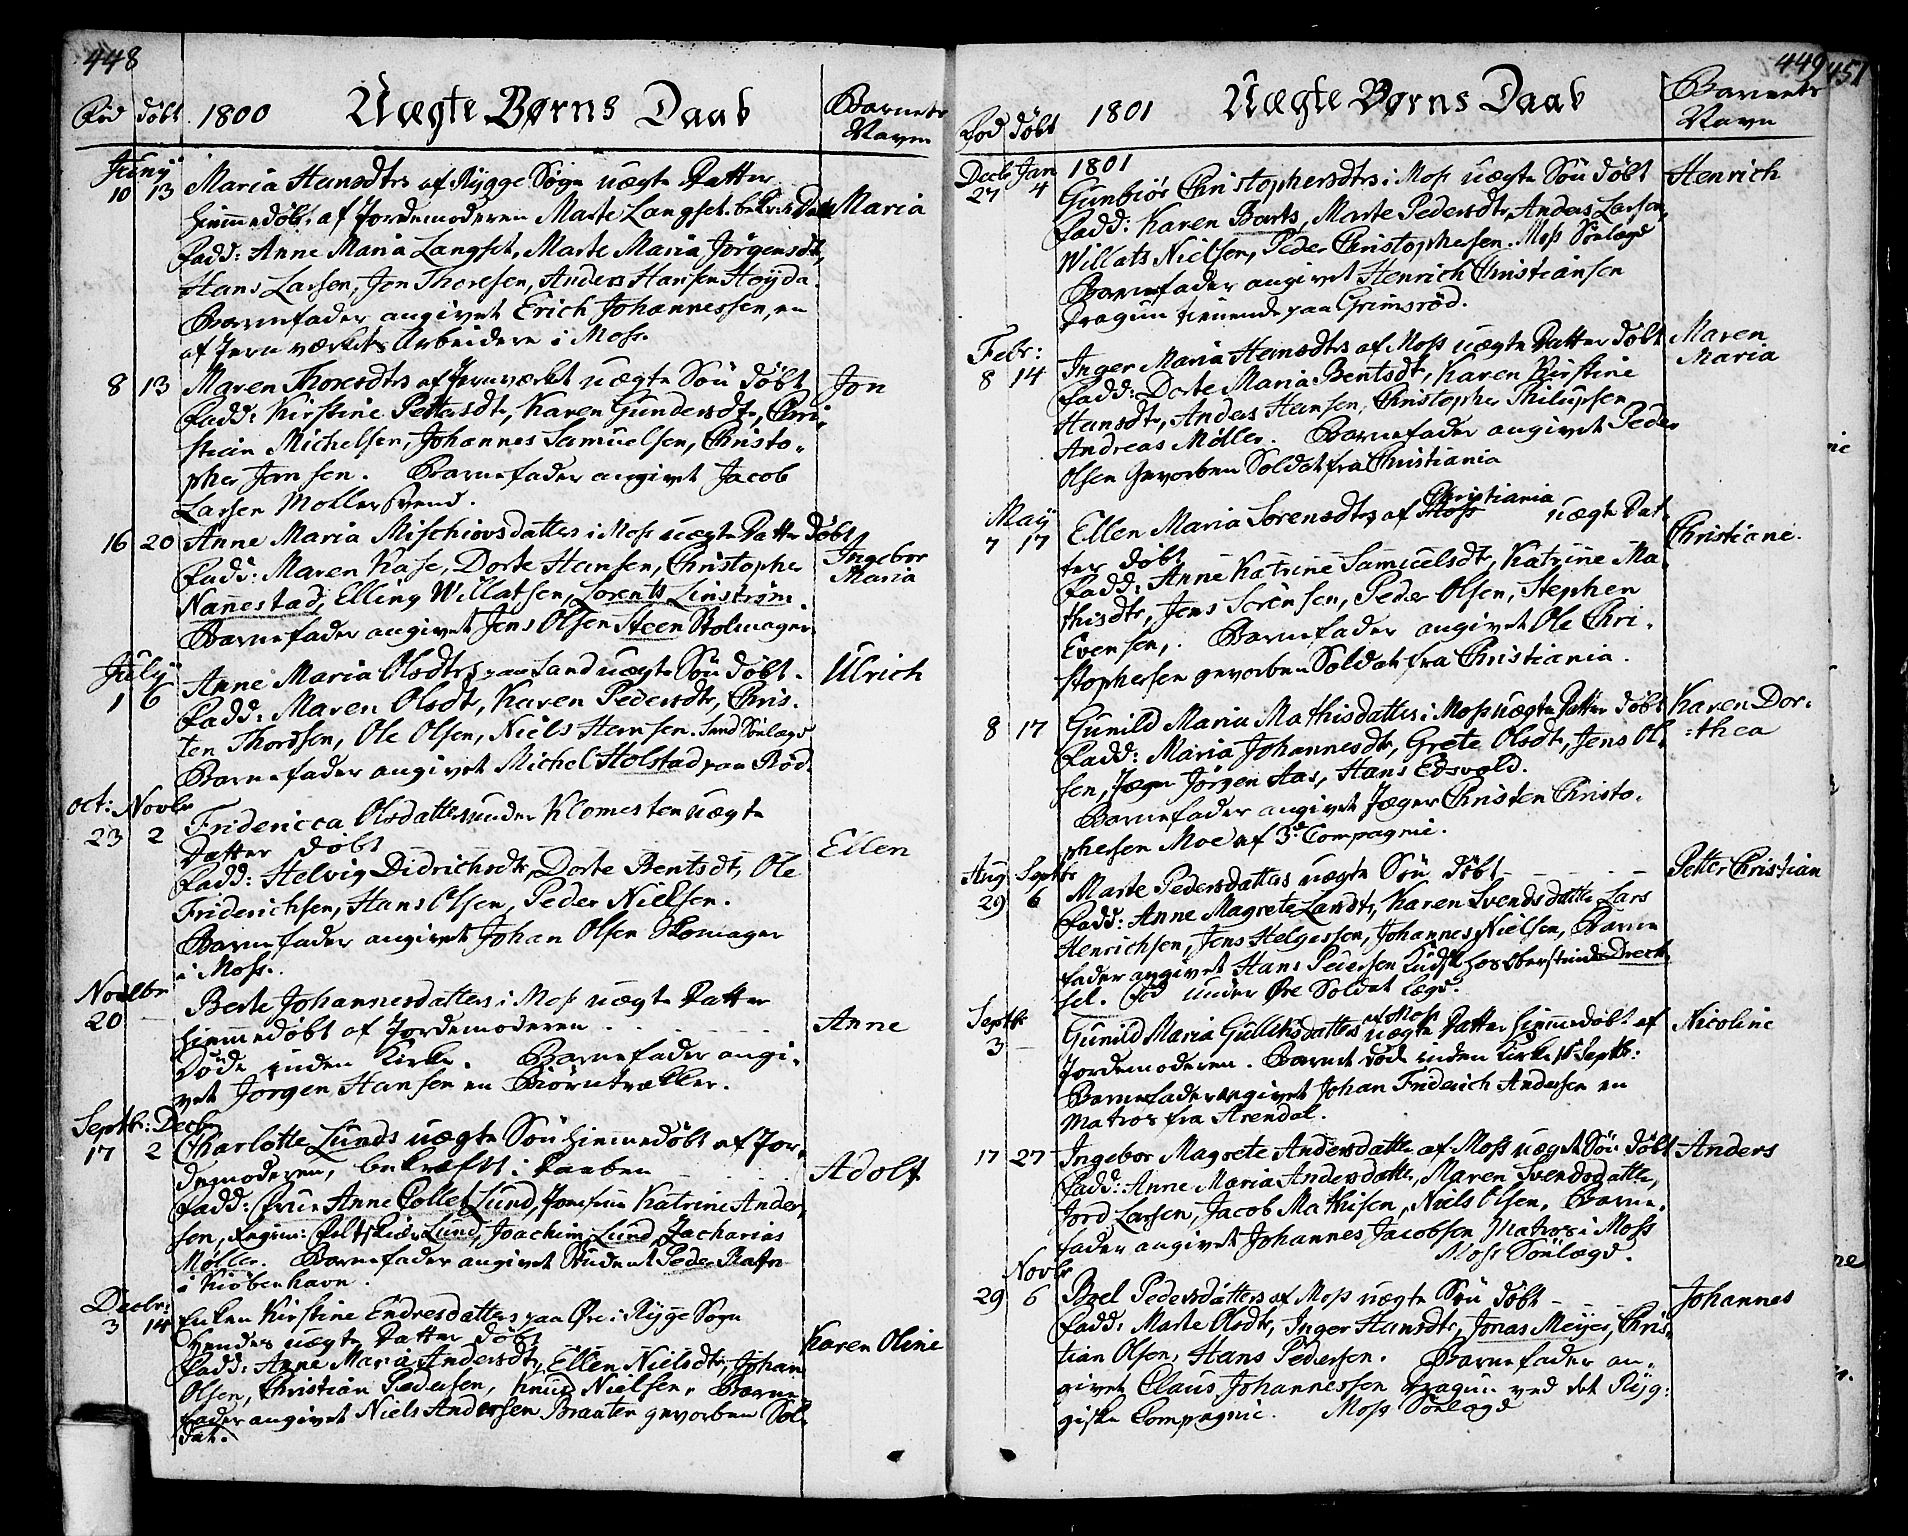 448
Fød døbt 1800 Uægte Børns Daab Barnets Navn
Juny
10 13 Maria Hansdtrs af Rygge Sogn uægte Datter
hiemmedøbt af Jordemoderen Marte Langset. bekræft Daab Maria
Fadd: Anne Maria Langset, Marte Maria Jörgensdtr,
Hans Larsen, Jon Thoresen, Anders Hansen Høyda.
Barnefader angivet Erich Johannessen, en
af Jernværkets Arbeidere i Moss.
8 13 Maren Thoresdtrs af Jernværket uægte Søn døbt Jon
Fadd: Kirstine Pettersdtr, Karen Gundersdtr, Chri-
stian Michelsen, Johannes Samuelsen, Christo-
pher Jansen. Barnefader angivet Jacob
Larsen Møller Svend.
16 20 Anne Maria Mischiovsdatters i Moss uægte Datter døbt Ingebor Maria
Fadd: Maren Kase, Dorte Hansen, Christopher
Nannestad, Elling Willatsen, Lorents Linstrøm.
Barnefader angivet Jens Olsen Steen Stolmager
July
1 6 Anne Maria Olsdtrs paa Sand uægte Søn døbt. Ulrich
Fadd: Maren Olsdtr, Karen Pedersdtr, Chris-
ten Thordsen, Ole Olsen, Niels Hansen. Sand Sønlægd
Barnefader angivet Michel Holstad paa Rød.
Oct: Novbr
23 2 Fridericca Olsdatters under Klomesten uægte
Datter døbt Ellen
Fadd: Helvig Didrichsdtr, Dorte Bentsdtr, Ole
Friderichsen, Hans Olsen, Peder Nielsen.
Barnefader angivet Johan Olsen Skomager
i Moss.
Novbr
20 Berte Johannesdatters i Moss uægte Datter
hiemmedøbt af Jordemoderen Anne
Døde inden Kirke. Barnefader angi-
vet Jörgen Hansen en Biörntrækker.
Septbr: Decbr
17 2 Charlotte Lunds uægte Søn hiemmedøbt af Jor-
demoderen, bekræftet i Daaben Adolf
Fadd: Frue Anne Collet Lund, Jomfrue Katrine Ander-
sen, Regim: Feltskiær Lund, Joachim Lund, Zacharias
Møller. Barnefader angivet Student Peder
i Kiöbenhavn.
Decbr:
3 14 Kirstine Endresdatters paa Øre i Rygge Sogn
Hendes uægte Datter døbt Karen Oline
Fadd: Anne Maria Andersdtr, Ellen Nielsdtr, Johan
Olsen, Christian Pedersen, Knud Nielsen. Barne-
fader angivet Niels Andersen Braaten gevorben Sol-
dat.
449 451
Fød døbt 1801 Uægte Børns Daab Barnets Navn
Decb Jan 1801
27 4 Gunbiör Christophersdtrs i Moss uægte Søn døbt Henrich
Fadd: Karen Barts, Marte Pedersdtr, Anders Larsen,
Willats Nielsen, Peder Christophersen. Moss Sønlægd
Barnefader angivet Henrich Christiansen
Dragun tienende paa Grimsrød.
Febr:
8 14 Inger Maria Hansdtrs af Moss uægte Datter døbt Maren Maria
Fadd: Dorte Maria Bentsdtr, Karen Kirstine
Hansdtr, Anders Hansen, Christopher Philipsen
Andreas Møller. Barnefader angivet Peder
Olsen Gevorben Soldat fra Christiania
May
7 17 Ellen Maria Sorensdtrs af Moss Christiania uægte Dat-
ter døbt Christiane.
Fadd: Anne Katrine Samuelsdtr, Katrine Ma-
thisdtr, Jens Sørensen, Peder Olsen, Stephen
Evensen,. Barnefader angivet Ole Chri-
stophersen gevorben Soldat fra Christiania.
8 17 Gunild Maria Mathisdatters i Moss uægte Datter døbt Karen Dor-
thea
Fadd: Maria Johannesdtr, Grete Olsdtr, Jens Ol-
sen, Jæger Jörgen Aas, Hans Edsvold.
Barnefader angivet Jæger Christen Christo-
phersen Moe af 3de Compagnie.
Aug Septbr
29 6 Marte Pedersdatters uægte Søn døbt Petter Christian
Fadd: Anne Magrete Landtr, Karen Svendsdatter, Lars
Henrichsen, Jens Helgessen, Johannes Nielsen, Barne
fader angivet Hans Pedersen Kudsk hos Oberstinde Dreck
sel. Fød under Øre Soldat Lægd.
Septbr
3 Gunild Maria Gullichsdatters af Moss uægte Datter hiemmedøbt af Nicoline
Jordemoderen. Barnet døde inden Kirke Septbr:
Barnefader angivet Johan Friderich Andersen en
Matros fra Arendal.
17 27 Ingebor Magrete Andersdatter af Moss uægte Søn døbt Anders
Fadd: Anne Maria Andersdatter, Maren Svendsdatter,
Jord Larsen, Jacob Mathisen, Niels Olsen, Barne-
fader angivet Johannes Jacobsen Matros i Moss
Moss Sønlægd.
Novbr
29 6 Boel Pedersdatters af Moss uægte Søn døbt Johannes
Fadd: Marte Olsdtr, Inger Hansdtr, Jonas Meyer, Chris-
tian Olsen, Hans Pedersen. Barnefader an-
givet Claus Johannessen Dragun ved det Ryg-
giske Compagnie. Moss Sønlægd